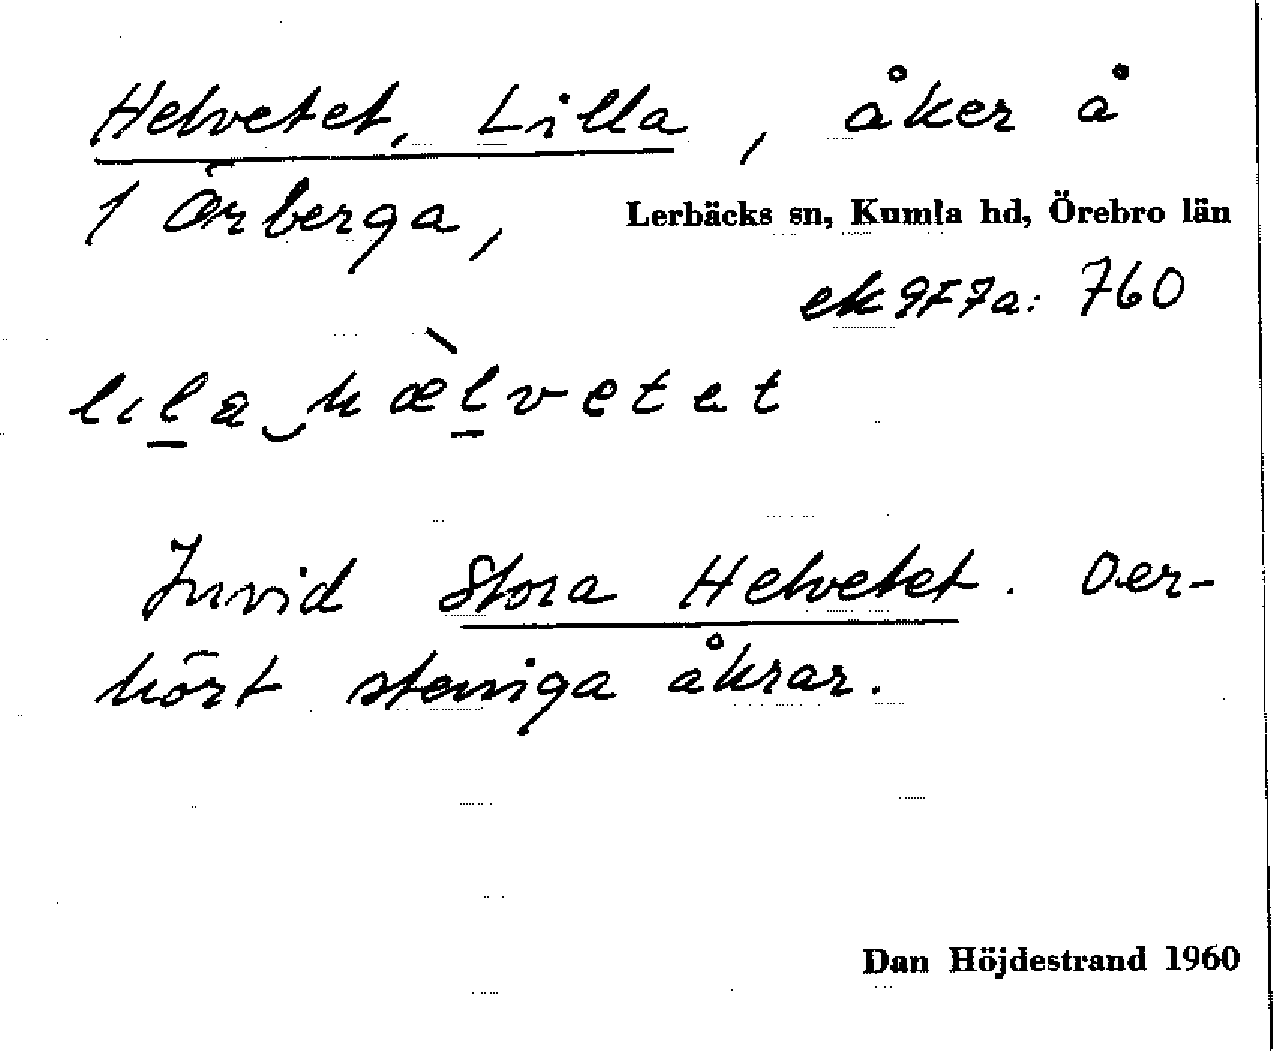 Helvetet, Lilla, åker å
1 Örberga,
Lerbäcks sn, Kumla hd, Örebro län
ek 9F7a: 760
lila hæ̀lvetet
Invid Stora Helvetet. Oer-
hört steniga åkrar.
Dan Höjdestrand 1960